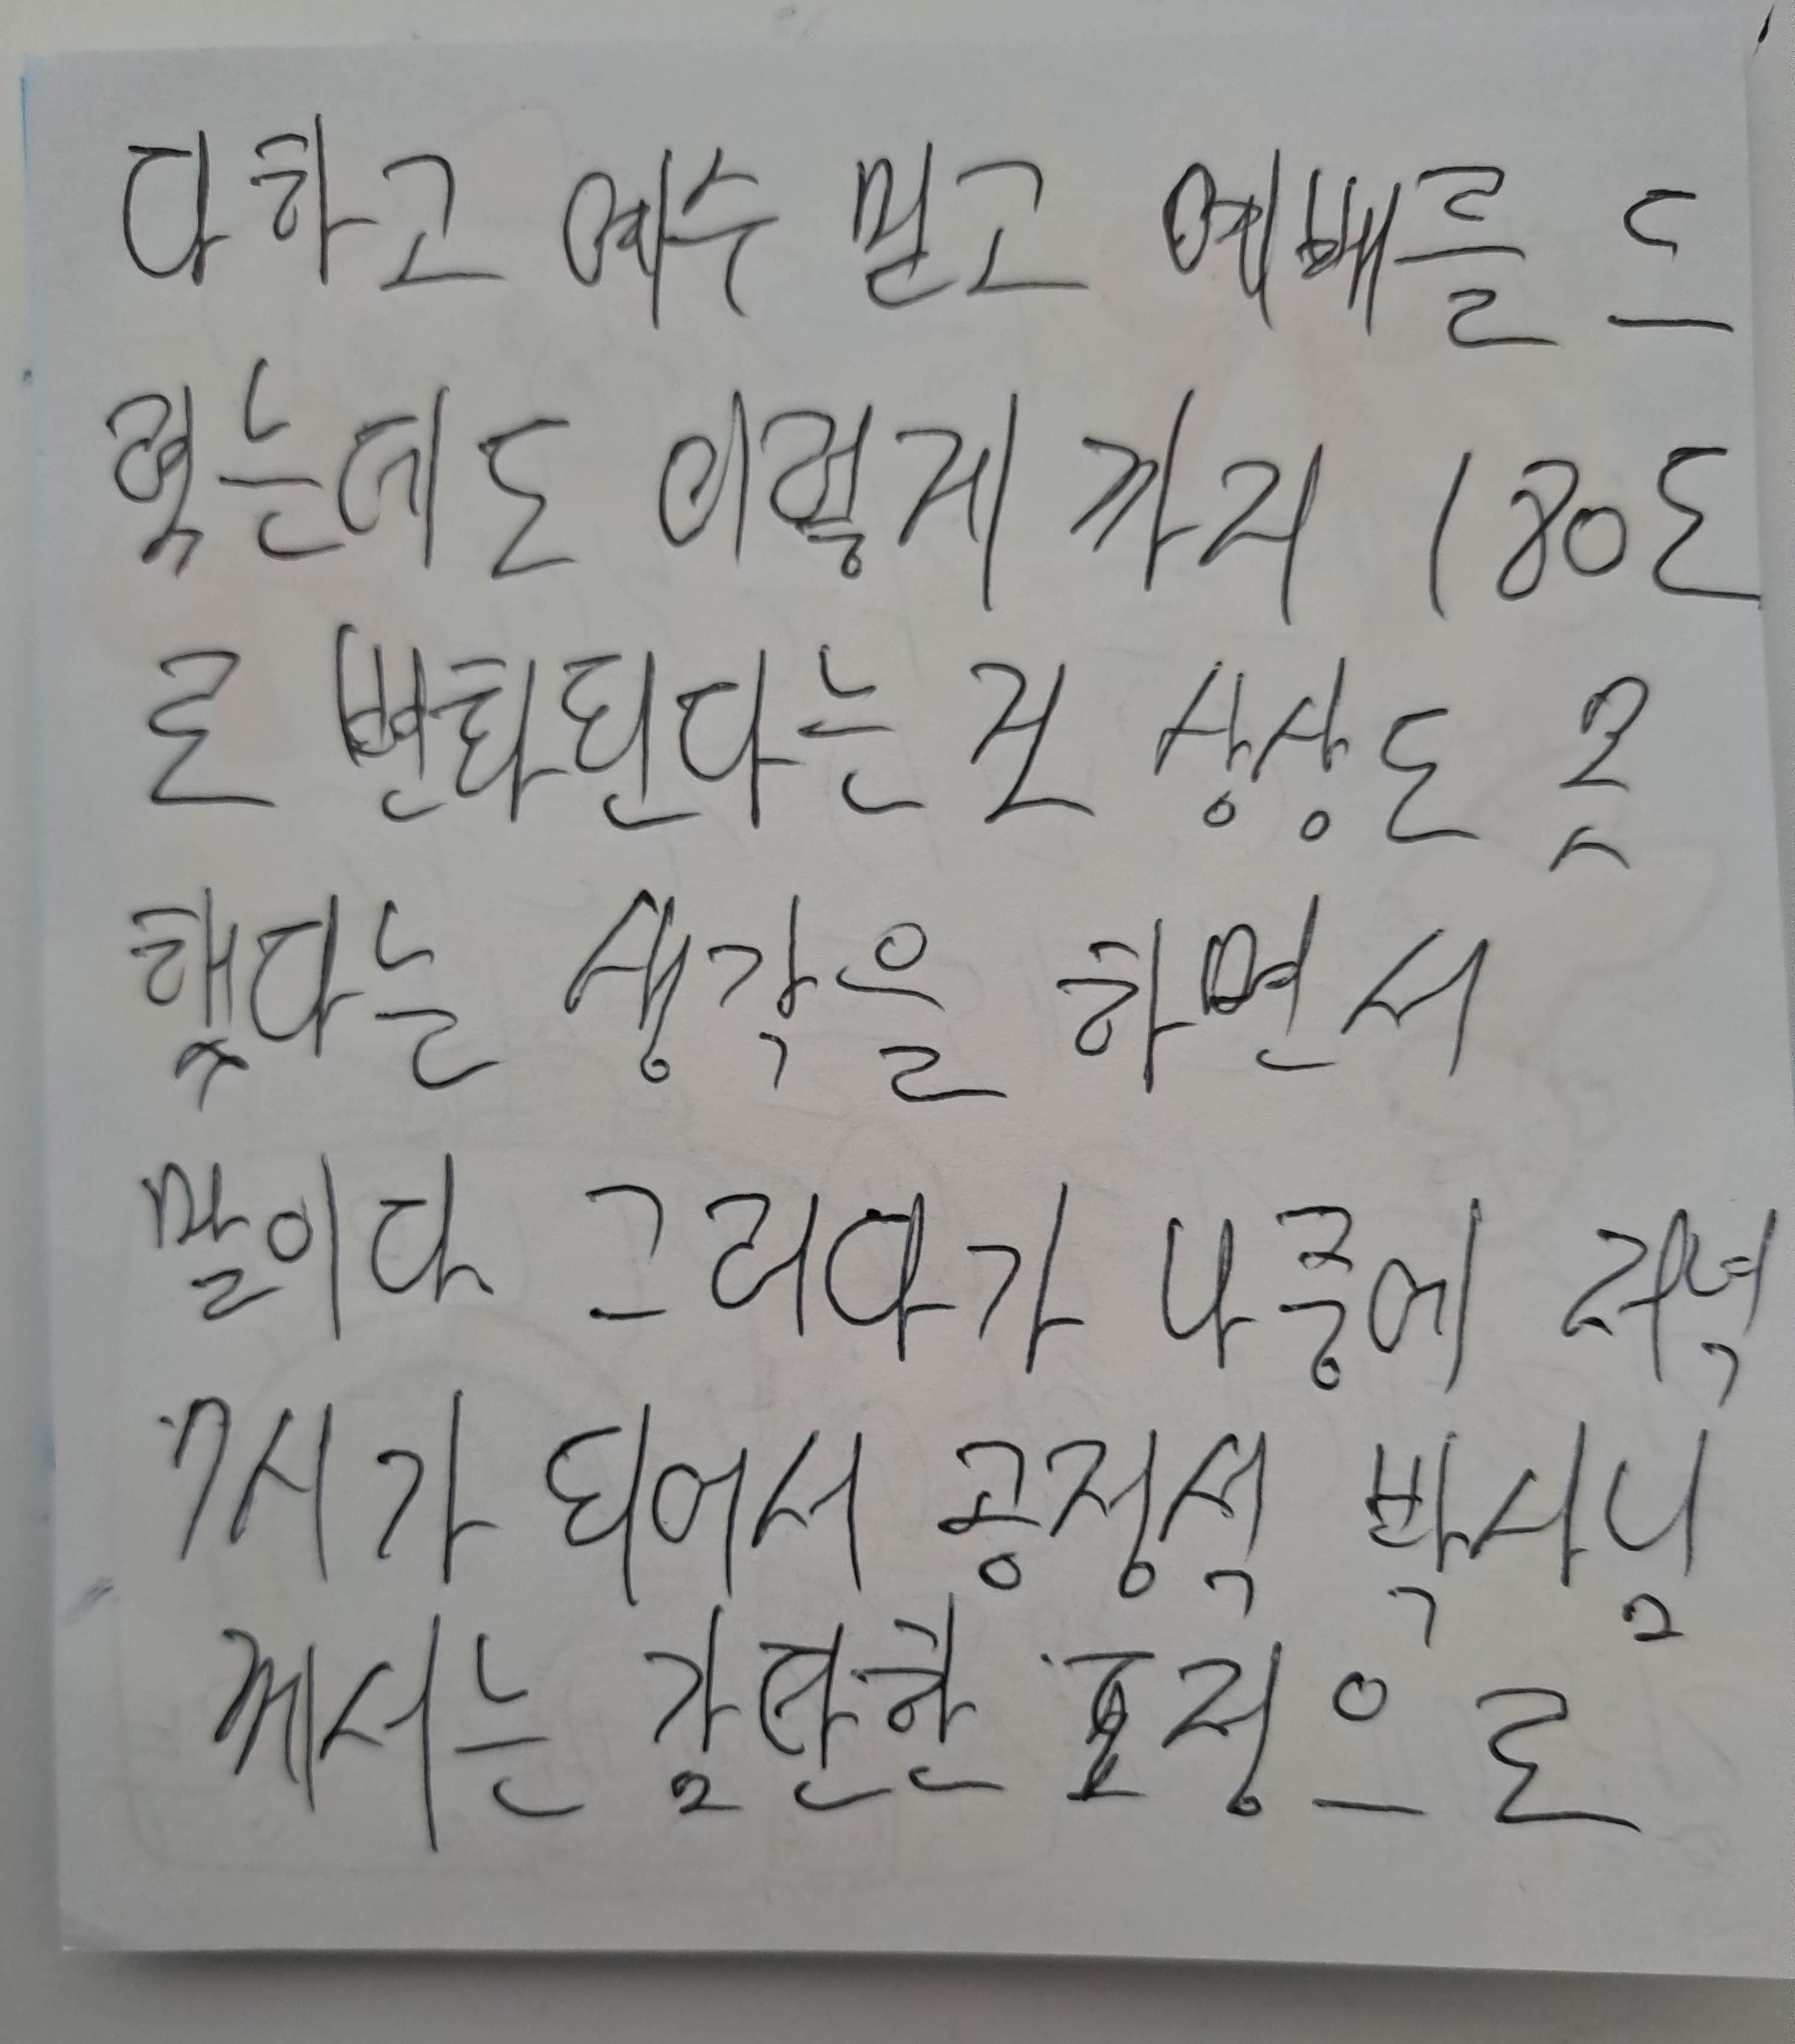 다하고 예수 믿고 예배를 드
렸는데도 이렇게 까지 180도
로 변화된다는 것 상상도 못
했다는 생각을 하면서
말이다 그러다가 나중에 저녁
7시가 되어서 공정석 박사님
께서는 감탄한 표정으로